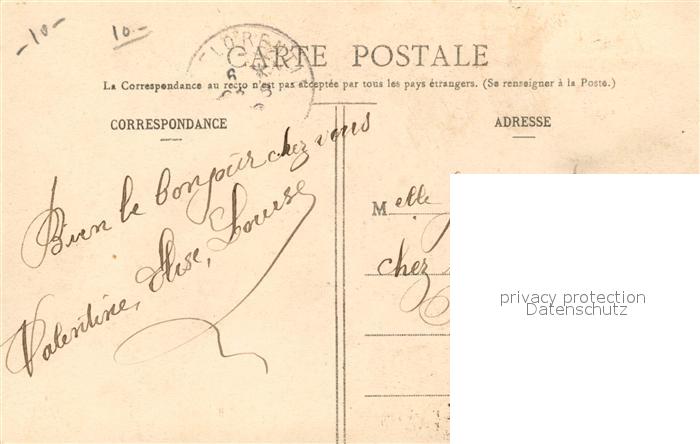 -10-
10-
CARTE POSTALE
La Correspondance au recto n'est pas acceptée par tous les pays étrangers. (Se renseigner à la Poste.)
CORRESPONDANCE
ADRESSE
Bien le bonjour chez vous
Valentine, Élise, Louise
Melle
chez
privacy protection
Datenschutz